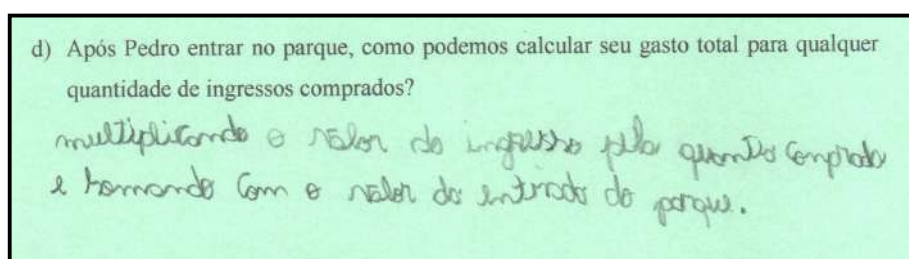 d) Após Pedro entrar no parque, como podemos calcular seu gasto total para qualquer
quantidade de ingressos comprados?
multiplicando o valor do ingresso pela quantia comprada
e somando com o valor da entrada do parque.